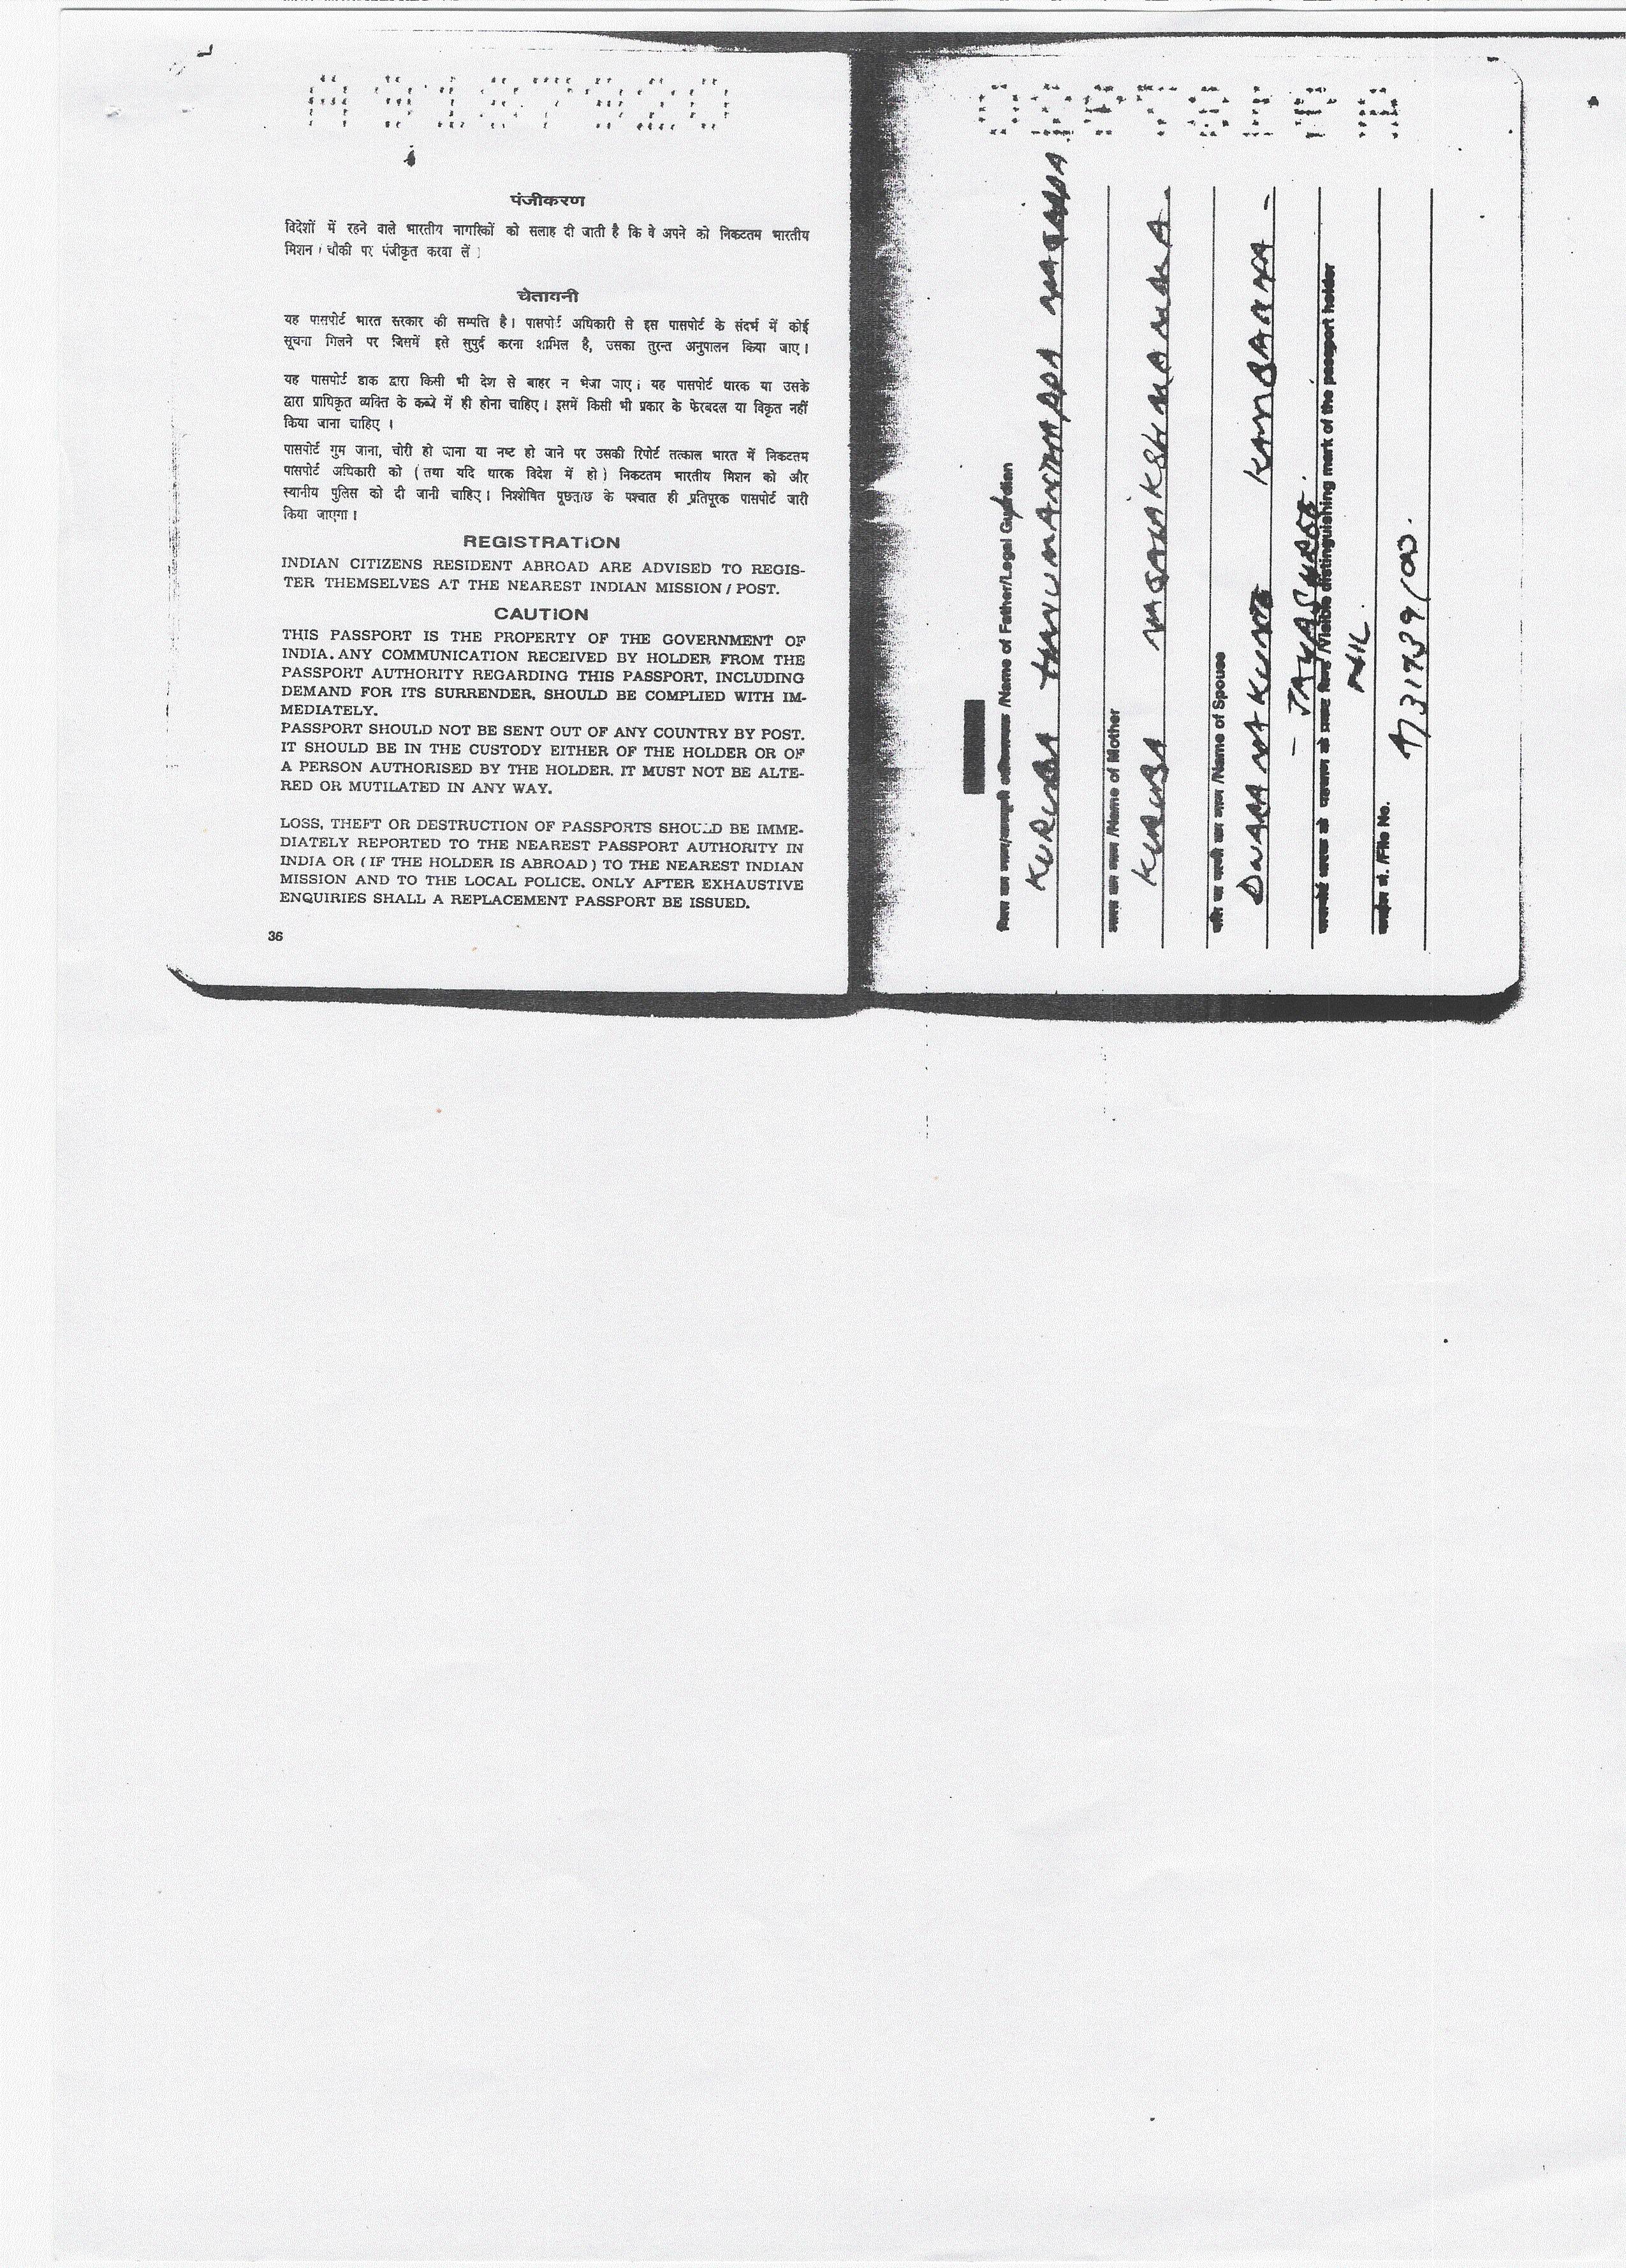 पंजीकरण
विदेशों में रहने वाले भारतीय नागरिकों को सलाह दी जाती है कि वे अपने को निकटतम भारतीय
मिशन / चौकी पर पंजीकृत करवा लें ।
चेतावनी
यह पासपोर्ट भारत सरकार की सम्पत्ति है। पासपोर्ट अधिकारी से इस पासपोर्ट के संदर्भ में कोई
सूचना मिलने पर जिसमें इसे सुपुर्द करना शामिल है, उसका तुरन्त अनुपालन किया जाए।
यह पासपोर्ट डाक द्वारा किसी भी देश से बाहर न भेजा जाए। यह पासपोर्ट धारक या उसके
द्वारा प्राधिकृत व्यक्ति के कब्जे में ही होना चाहिए। इसमें किसी भी प्रकार के फेरबदल या विकृत नहीं
किया जाना चाहिए ।
पासपोर्ट गुम जाना, चोरी हो जाना या नष्ट हो जाने पर उसकी रिपोर्ट तत्काल भारत में निकटतम
पासपोर्ट अधिकारी को ( तथा यदि धारक विदेश में हो ) निकटतम भारतीय मिशन को और
स्थानीय पुलिस को दी जानी चाहिए। निश्शेषित पूछताछ के पश्चात ही प्रतिपूरक पासपोर्ट जारी
किया जाएगा।
REGISTRATION
INDIAN CITIZENS RESIDENT ABROAD ARE ADVISED TO REGIS-
TER THEMSELVES AT THE NEAREST INDIAN MISSION / POST.
CAUTION
THIS PASSPORT IS THE PROPERTY OF THE GOVERNMENT OF
INDIA. ANY COMMUNICATION RECEIVED BY HOLDER FROM THE
PASSPORT AUTHORITY REGARDING THIS PASSPORT, INCLUDING
DEMAND FOR ITS SURRENDER, SHOULD BE COMPLIED WITH IM-
MEDIATELY.
PASSPORT SHOULD NOT BE SENT OUT OF ANY COUNTRY BY POST.
IT SHOULD BE IN THE CUSTODY EITHER OF THE HOLDER OR OF
A PERSON AUTHORISED BY THE HOLDER. IT MUST NOT BE ALTE-
RED OR MUTILATED IN ANY WAY.
LOSS, THEFT OR DESTRUCTION OF PASSPORTS SHOULD BE IMME-
DIATELY REPORTED TO THE NEAREST PASSPORT AUTHORITY IN
INDIA OR ( IF THE HOLDER IS ABROAD ) TO THE NEAREST INDIAN
MISSION AND TO THE LOCAL POLICE. ONLY AFTER EXHAUSTIVE
ENQUIRIES SHALL A REPLACEMENT PASSPORT BE ISSUED.
36
/Name of Father/Legal Guardian
KURUBA HANUMANTHAPPA
माता का नाम /Name of Mother
KURUBA NAGALAKSHMAMMA.
पति या पत्नी का नाम /Name of Spouse
KAMBANNA -
- JAYASHREE.
/Visible distinguishing mark of the passport holder
NIL.
फाईल सं. /File No.